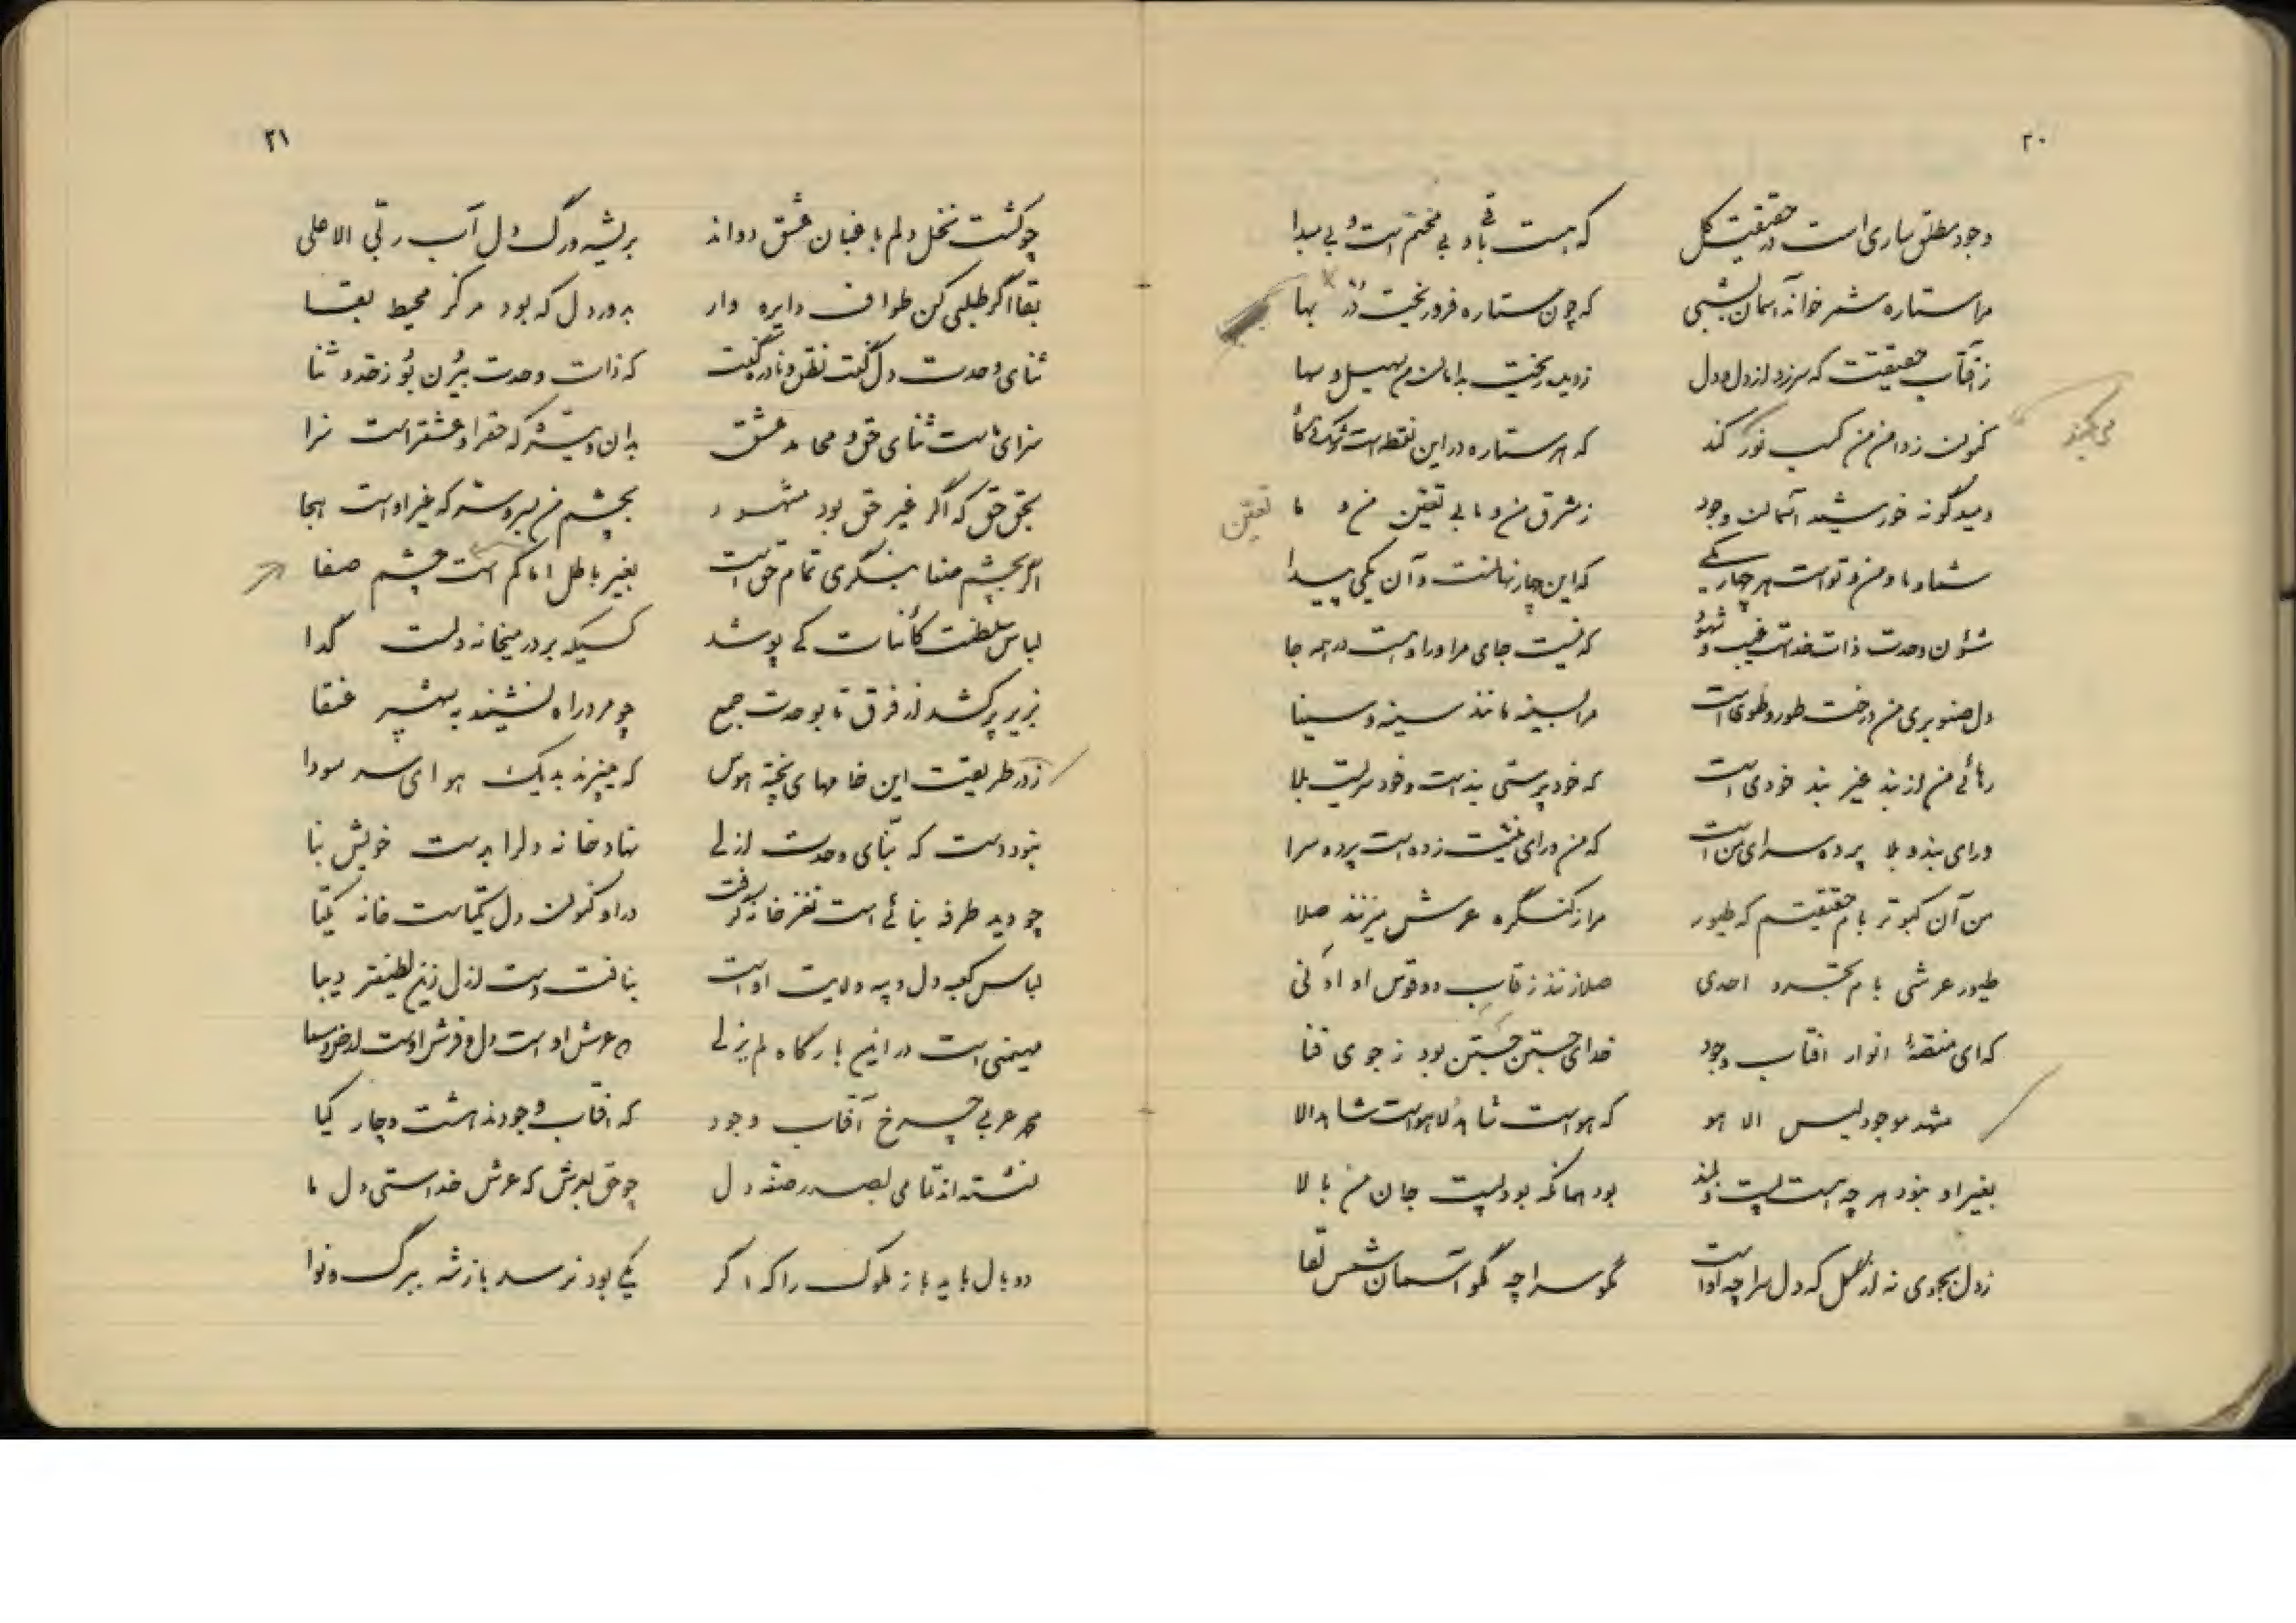 ۲۰
وجود مطلق ساری است در حقیقت کل    که هست باقی و بی مختم است و بی مبدا
مرا ستاره شمر خواند آسمان بشبی    که چون ستاره فرو ریخت بها
ز آفتاب حقیقت که سر زد از دل دل    ز دیده ریخت بدامان من سهیل و سها
کنون ز دامن من کسب نور کند    که هر ستاره در این نقطه است
می‌کنند
دمید گونه خورشید آسمان وجود    ز مشرق من و ما بی تعین من و ما
تعین
شما و ما و من و تو است هر چهار یکی    که این چار نهانست و آن یکی پیدا
شئون وحدت ذات خداست غیب و شهود    که نیست جای مر او را و هست در همه جا
دل صنوبری من درخت طور و طوی است    مرا بسینه مانند سینه و سینا
رهائی من از بند غیر بند خودی است    که خودپرستی بند است و خودسریت بلا
ورای بند و بلا پرده سرای من است    که من ورای مشیت زده است پرده سرا
من آن کبوتر بام حقیقتم که طیور    مرا ز کنگره عرش میزنند صلا
طیور عرشی بام تجرد احدی    صلا زنند ز قاب دو قوس او ادنی
که ای منصهٔ انوار افتاب وجود    خدای جستن جستن بود ز جوی فنا
مشهد موجود لیس الا هو    که هوست شاهد لاهوست شاهد الا
بغیر او نبود هر چه هست پست و بلند    بود همانکه بود پست جان من بالا
ز دل بجوی نه از گل که دل سراچه اوست    مگو سراچه بگو آسمان شمس لقا
۲۱
چو کشت نخل دلم باغبان عشق دواند    بریشه و رگ دل آب ربی الاعلی
بقا اگر طلبی کن طواف دایره وار    بدور دل که بود مرکز محیط بقا
ثنای وحدت دل گفت نطق و نادره گفت    که ذات وحدت بیرون بود ز حد و ثنا
سزای ماست ثنای حق و محامد عشق    بدان و بیشتر که حق را و عشق راست سزا
بحق حق که اگر غیر حق بود مشهود    بچشم من بر و شر که غیر اوست هجا
اگر بچشم صفا بنگری تمام حق است    بغیر باطل اما کم است چشم صفا
لباس سلطنت کائنات کی پوشد    کسیکه بر در میخانه دلست گدا
بزیر پر کشد از فرق تا بوحدت جمع    چو مرد راه نشیند به شهپر عنقا
ز در طریقت این خامهای پخته هوس    که میپزند به یک هوای سر سودا
نبود دست که بنای وحدت ازلی    نهاد خانه دل را بدست خویش بنا
چو دید طرفه بنائی است نغز خانه گرفت    در او کنون دل یکتاست خانه یکتا
لباس کعبه دل و په ولایت اوست    نبافت دست ازل زین لطیفتر دیبا
مهیمنی است در این بارگاه لم یزلی    که عرش اوست دل و فرش اوست ارض و سما
محمد عربی چرخ آفتاب وجود    که افتاب وجودند هشت و چار کیا
نشسته اند تمامی بصدر صفه دل    چو حق بعرش که عرش خداستی دل ما
دو بال باید باز ملوک را که اگر    یکی بود نرسد باز شه ببرگ و نوا